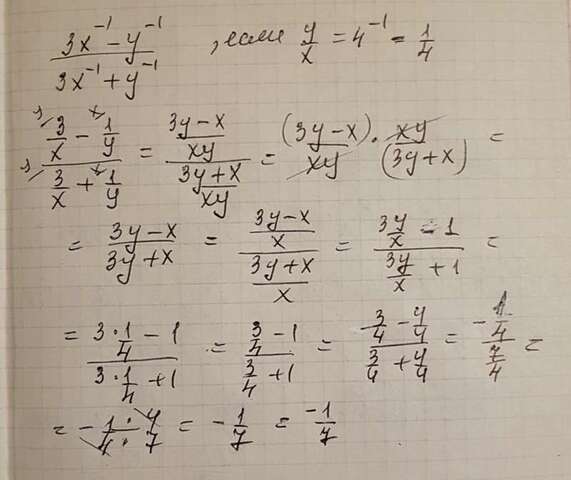 (3x⁻¹ - y⁻¹)/(3x⁻¹ + y⁻¹) , если y/x = 4⁻¹ = 1/4
(3/x - 1/y)/(3/x + 1/y) = ((3y-x)/xy)/((3y+x)/xy) = (3y-x)/xy · xy/(3y+x) =
= (3y-x)/(3y+x) = ((3y-x)/x)/((3y+x)/x) = (3y/x - 1)/(3y/x + 1) =
= (3·1/4 - 1)/(3·1/4 + 1) = (3/4 - 1)/(3/4 + 1) = (3/4 - 4/4)/(3/4 + 4/4) = (-1/4)/(7/4) =
= - 1·4/4·7 = - 1/7 = -1/7